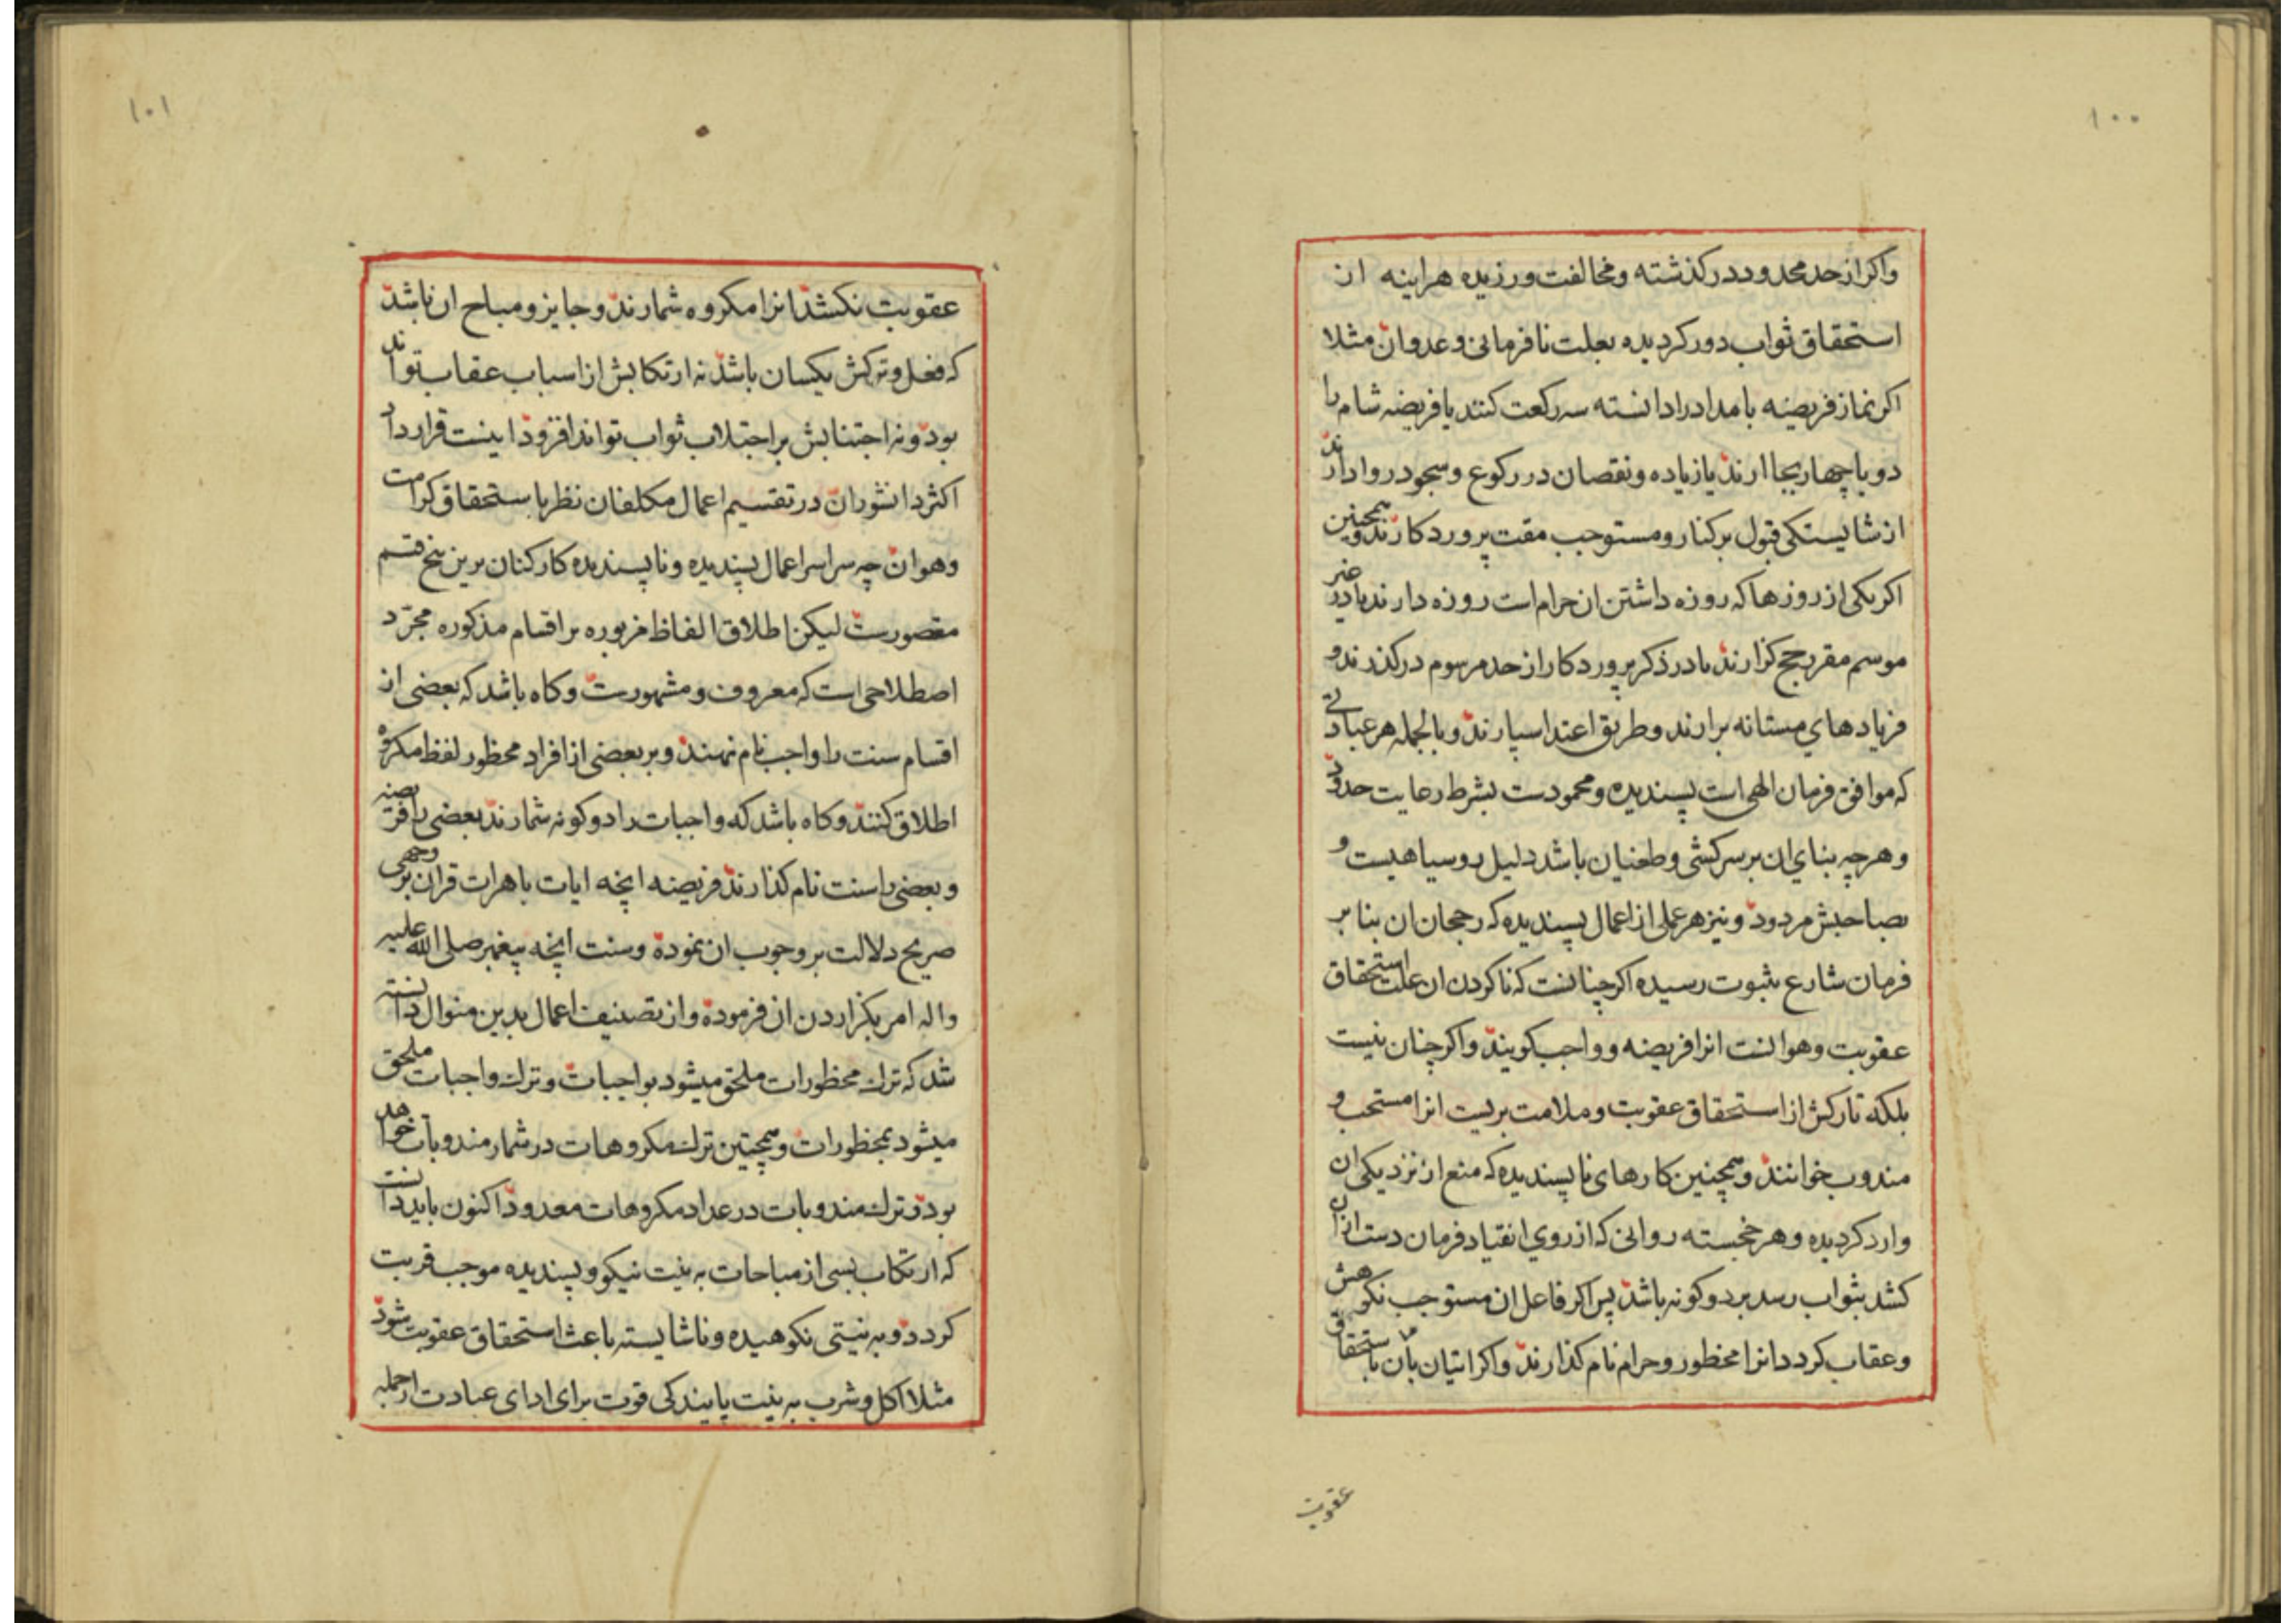 ۱۰۰
واکر از حد محدود در کذشته و مخالفت ورزیده هراینه از
استحقاق ثواب دور کردیده بعلت نافرمانی و عدوان مثلا
اکر نماز فریضه بامداد را دانسته سه رکعت کنند یا فریضه شام را
دو یا چهار بجا ارند یا زیاده و نقصان در رکوع و سجود روا دارند
از شایستکی قبول برکنار و مستوجب مقت پروردکارند و همچنین
اکر یکی از روزها که روزه داشتن ان حرام است روزه دارند یا در غیر
موسم مقرر حج کزارند یا در ذکر پروردکار از حد مرسوم در کذرند و
فریادهای مستانه برارند و طریق اعتدا سپارند و بالجمله هر عبادتی
که موافق فرمان الهی است پسندیده و محمودست بشرط رعایت حدود
و هرچه بنای ان بر سرکشی و طغیان باشد دلیل روسیاهیست و
بصاحبش مردود و نیز هر عملی از اعمال پسندیده که رجحان ان بنا بر
فرمان شارع بثبوت رسیده اکر چنانست که ناکردن ان علت استحقاق
عقوبت و هوانست انرا فریضه و واجب کویند و اکر چنان نیست
بلکه تارکش از استحقاق عقوبت و ملامت بریست انرا مستحب و
مندوب خوانند و همچنین کارهای ناپسندیده که منع از نزدیکی ان
وارد کردیده و هر خجسته روانی که از روی انقیاد فرمان دست ازان
کشد بثواب رسد بر دو کونه باشد پس اکر فاعل ان مستوجب نکوهش
و عقاب کردد انرا محظور و حرام نام کذارند و اکر اتیان بان باستحقاق
عقوبت
۱۰۱
عقوبت نکشد انرا مکروه شمارند و جایز و مباح ان باشد
که فعل و ترکش یکسان باشد نه ارتکابش از اسباب عقاب تواند
بود و نه اجتنابش بر اجتلاب ثواب تواند افزود اینست قرارداد
اکثر دانشوران در تقسیم اعمال مکلفان نظر باستحقاق کرامت
و هوان چه سراسر اعمال پسندیده و ناپسندیده کارکنان برین پنج قسم
مقصورست لیکن اطلاق الفاظ مزبوره بر اقسام مذکوره مجرّد
اصطلاحی است که معروف و مشهورست و کاه باشد که بعضی از
اقسام سنت را واجب نام نهند و بر بعضی از افراد محظور لفظ مکروه
اطلاق کنند و کاه باشد که واجبات را دو کونه شمارند بعضی را فریضه
و بعضی را سنت نام کذارند فریضه انچه ایات باهرات قران بر وجهی
صریح دلالت بر وجوب ان نموده و سنت انچه پیغمبر صلی الله علیه
واله امر بکزاردن ان فرموده و از تصنیف اعمال بدین منوال دانسته
شد که ترك محظورات ملحق میشود بواجبات و ترك واجبات ملحق
میشود بمحظورات و همچنین ترك مکروهات در شمار مندوبات خواهد
بود و ترك مندوبات در عداد مکروهات معدود اکنون باید دانست
که ارتکاب بسی از مباحات به نیت نیکو و پسندیده موجب قربت
کردد و به نیتی نکوهیده و ناشایسته باعث استحقاق عقوبت شود
مثلا اکل و شرب به نیت پایندکی قوت برای ادای عبادت از جمله